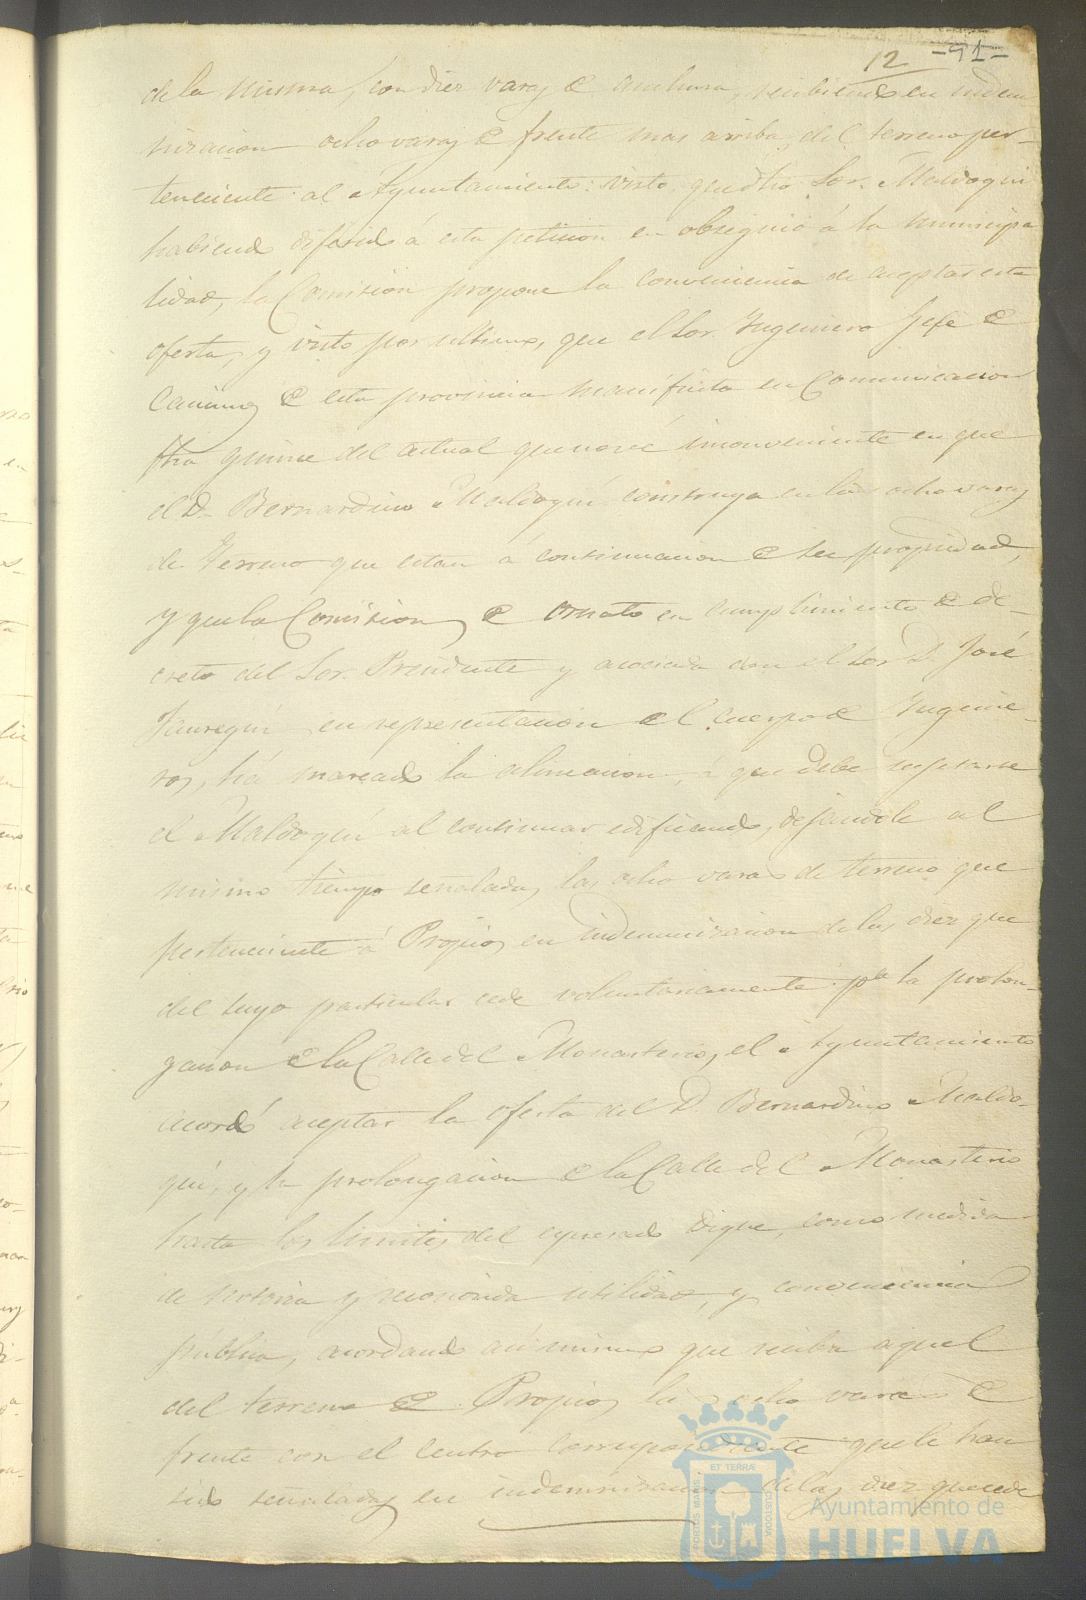 12 -91-
de la misma, con diez varas de anchura, recibiendo en indem
nizacion ocho varas de frente mas arriba, del terreno per-
teneciente al Ayuntamiento: visto que dho Sor. Maldoqui
habiendo diferido á esta peticion en obsequio á la municipa
lidad, la Comision propone la conveniencia de aceptar esta
oferta, y visto por ultimo, que el Sor Ingeniero Gefe de
Caminos de esta provincia manifiesta en Comunicacion
fha quince del actual que no vé inconveniente en que
el D. Bernardino Maldoqui construya en las ocho varas
de Terreno que estan á continuacion de su propiedad,
y que la Comision de Ornato en cumplimiento de de-
creto del Sor. Presidente y asociada con el Sor D. José
Jauregui en representacion del cuerpo de Ingenie-
ros, há marcado la alineacion, á que debe sugetarse
el Maldoqui al continuar edificando, dejandole al
mismo tiempo señaladas las ocho varas de terreno que
perteneciente á Propios en indemnizacion de las diez que
del suyo particular cede voluntariamente pa la prolon-
gacion de la Calle del Monasterio, el Ayuntamiento
acordó aceptar la oferta del D. Bernardino Maldo-
qui, y la prolongacion de la Calle del Monasterio
hasta los limites del espresado Dique, como medida
de notoria y reconocida utilidad, y conveniencia
pública, acordando asi mismo que reciba aquel
del terreno de Propios las ocho varas de
frente con el centro correspondiente que le han
sido señaladas en indemnizacion de las diez que cede
PORTUS MARIS ET TERRÆ CUSTODIA
Ayuntamiento de
HUELVA